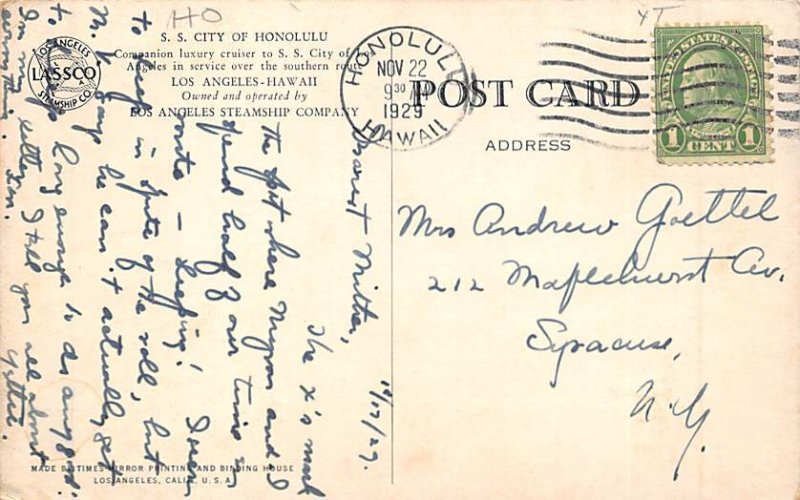 HO
YT
S. S. CITY OF HONOLULU
Companion luxury cruiser to S. S. City of Los
Angeles in service over the southern route
LOS ANGELES-HAWAII
Owned and operated by
LOS ANGELES STEAMSHIP COMPANY
LOS ANGELES
LASSCO
STEAMSHIP CO.
HONOLULU
NOV 22
9 30
1929
HAWAII
POST CARD
UNITED STATES POSTAGE
1 CENT 1
ADDRESS
Mrs Andrew Goettel
212 Maplehurst Av.
Syracuse,
N.Y.
Dearest Mother,
The x's mark
the spot where Myron and I
spend half of our time en
route — sleeping!
to sleep in spite of the roll, but
M. says he can't actually get
to long enough to do any good.
In my letter I tell you all about
everything.
MADE BY TIMES-MIRROR PRINTING AND BINDING HOUSE
LOS ANGELES, CALIF., U. S. A.